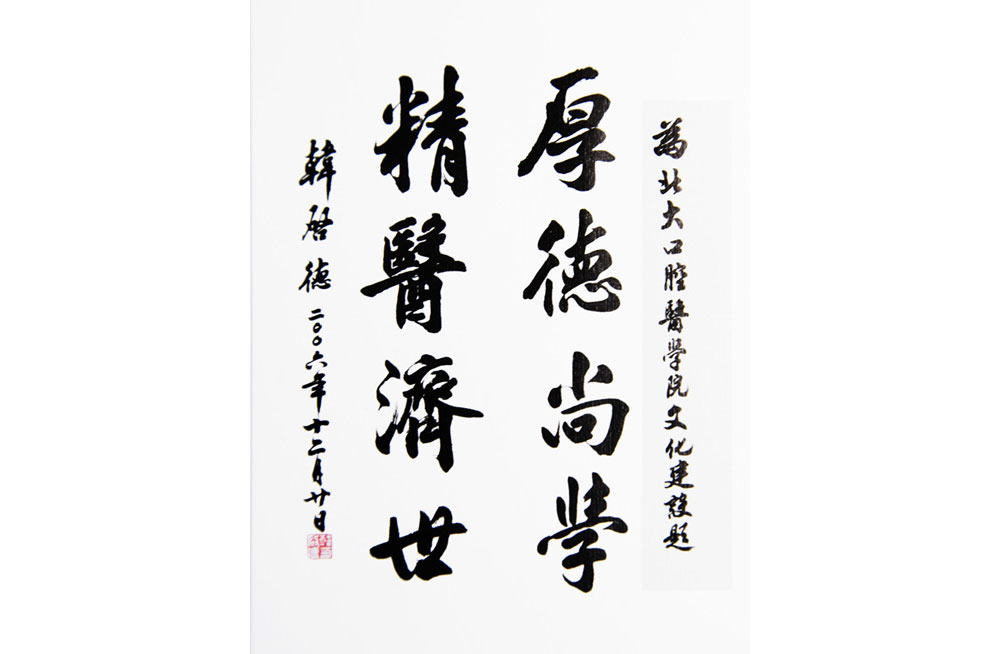 為北大口腔醫學院文化建設題
厚德尚學
精醫濟世
韓啓德二〇〇六年十二月廿日